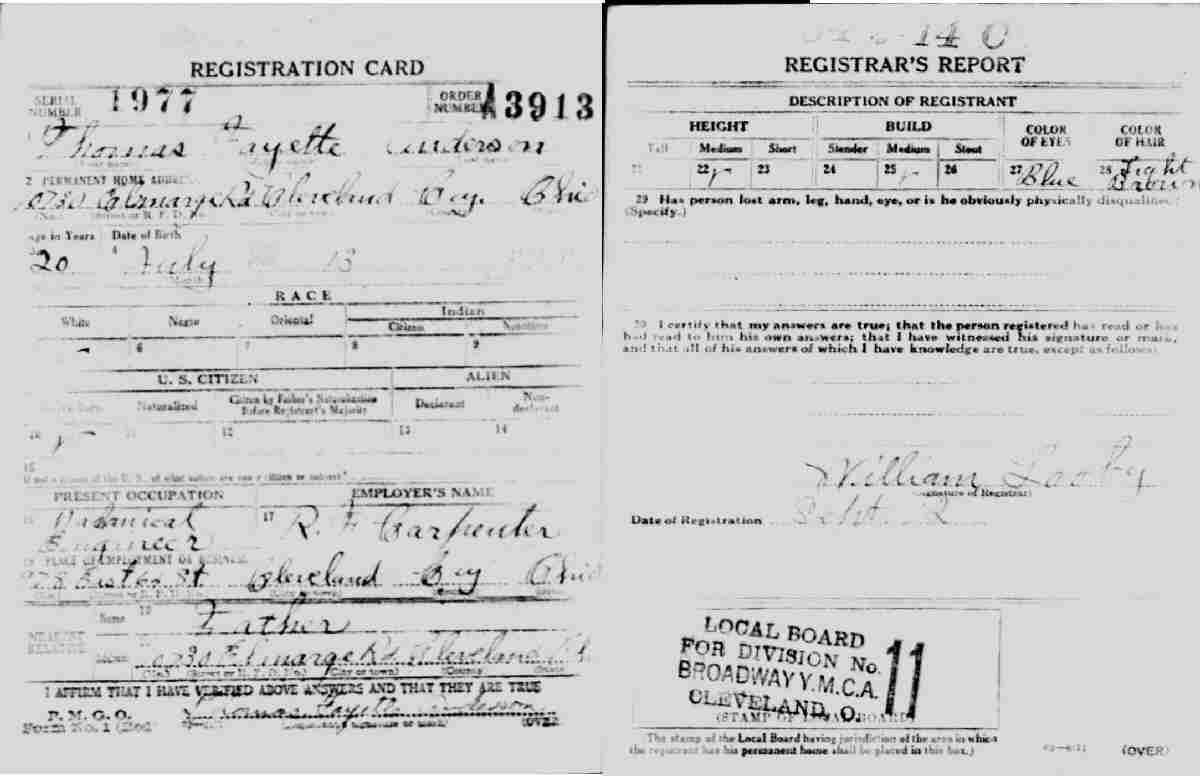 REGISTRATION CARD
SERIAL NUMBER 1977 ORDER NUMBER A3913
1 Thomas Fayette Anderson
2 PERMANENT HOME ADDRESS
Rd Cleveland Cuy. Ohio
(No.) (Street or R. F. D. No.) (City or town)
Age in Years Date of Birth
20 4 July 13
RACE
White Negro Oriental Indian
Citizen Noncitizen
6 7 8 9
U. S. CITIZEN ALIEN
Naturalized Citizen by Father's Naturalization Before Registrant's Majority Declarant Non-declarant
10 11 12 13 14
15
If not a citizen of the U. S., of what nation are you a citizen or subject?
PRESENT OCCUPATION EMPLOYER'S NAME
Engineer 17 R. H Carpenter
PLACE OF EMPLOYMENT OR BUSINESS
St. Cleveland Cuy Ohio
NEAREST RELATIVE
Name 19 Father
Address Rd Cleveland
(No.) (Street or R. F. D. No.) (City or town) (County)
I AFFIRM THAT I HAVE VERIFIED ABOVE ANSWERS AND THAT THEY ARE TRUE
P. M. G. O.
Form No. 1 (Red) Thomas Fayette Anderson (OVER)
14 C
REGISTRAR'S REPORT
DESCRIPTION OF REGISTRANT
HEIGHT BUILD COLOR OF EYES COLOR OF HAIR
Tall Medium Short Slender Medium Stout
21 22 23 24 25 26 27 Blue 28 Light Brown
29 Has person lost arm, leg, hand, eye, or is he obviously physically disqualified?
(Specify.)
30 I certify that my answers are true; that the person registered has read or has
had read to him his own answers; that I have witnessed his signature or mark,
and that all of his answers of which I have knowledge are true, except as follows:
William
(Signature of Registrar)
Date of Registration Sept. 12
LOCAL BOARD
FOR DIVISION No. 11
BROADWAY Y.M.C.A.
CLEVELAND, O.
(STAMP OF LOCAL BOARD)
The stamp of the Local Board having jurisdiction of the area in which
the registrant has his permanent home shall be placed in this box.)
(OVER)